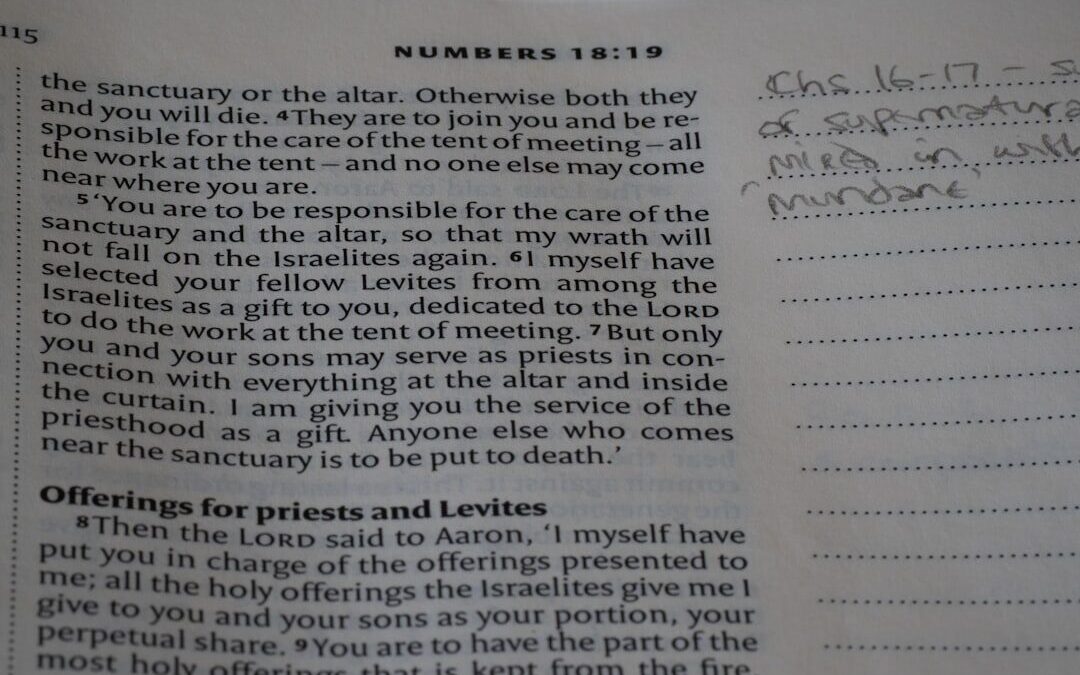 115
NUMBERS 18:19
the sanctuary or the altar. Otherwise both they
and you will die. 4They are to join you and be re-
sponsible for the care of the tent of meeting – all
the work at the tent – and no one else may come
near where you are.
5‘You are to be responsible for the care of the
sanctuary and the altar, so that my wrath will
not fall on the Israelites again. 6I myself have
selected your fellow Levites from among the
Israelites as a gift to you, dedicated to the LORD
to do the work at the tent of meeting. 7But only
you and your sons may serve as priests in con-
nection with everything at the altar and inside
the curtain. I am giving you the service of the
priesthood as a gift. Anyone else who comes
near the sanctuary is to be put to death.’
Offerings for priests and Levites
8Then the LORD said to Aaron, ‘I myself have
put you in charge of the offerings presented to
me; all the holy offerings the Israelites give me I
give to you and your sons as your portion, your
perpetual share. 9You are to have the part of the
most holy offerings that is kept from the fire.
Chs 16-17 –
of
mixed in with
‘mundane’